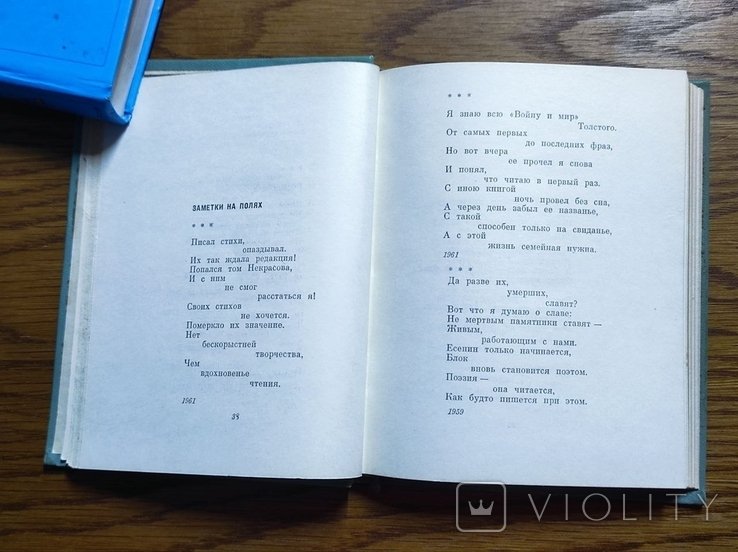 ЗАМЕТКИ НА ПОЛЯХ
* * *
Писал стихи,
опаздывал.
Их так ждала редакция!
Попался том Некрасова,
И с ним
не смог
расстаться я!
Своих стихов
не хочется.
Померкло их значение.
Нет
бескорыстней
творчества,
Чем
вдохновенье
чтения.
1961
38
* * *
Я знаю всю «Войну и мир»
Толстого.
От самых первых
до последних фраз,
Но вот вчера
ее прочел я снова
И понял,
что читаю в первый раз.
С иною книгой
ночь провел без сна,
А через день забыл ее названье,
С такой
способен только на свиданье,
А с этой
жизнь семейная нужна.
1961
* * *
Да разве их,
умерших,
славят?
Вот что я думаю о славе:
Не мертвым памятники ставят —
Живым,
работающим с нами.
Есенин только начинается,
Блок
вновь становится поэтом.
Поэзия —
она читается,
Как будто пишется при этом.
1959
VIOLITY